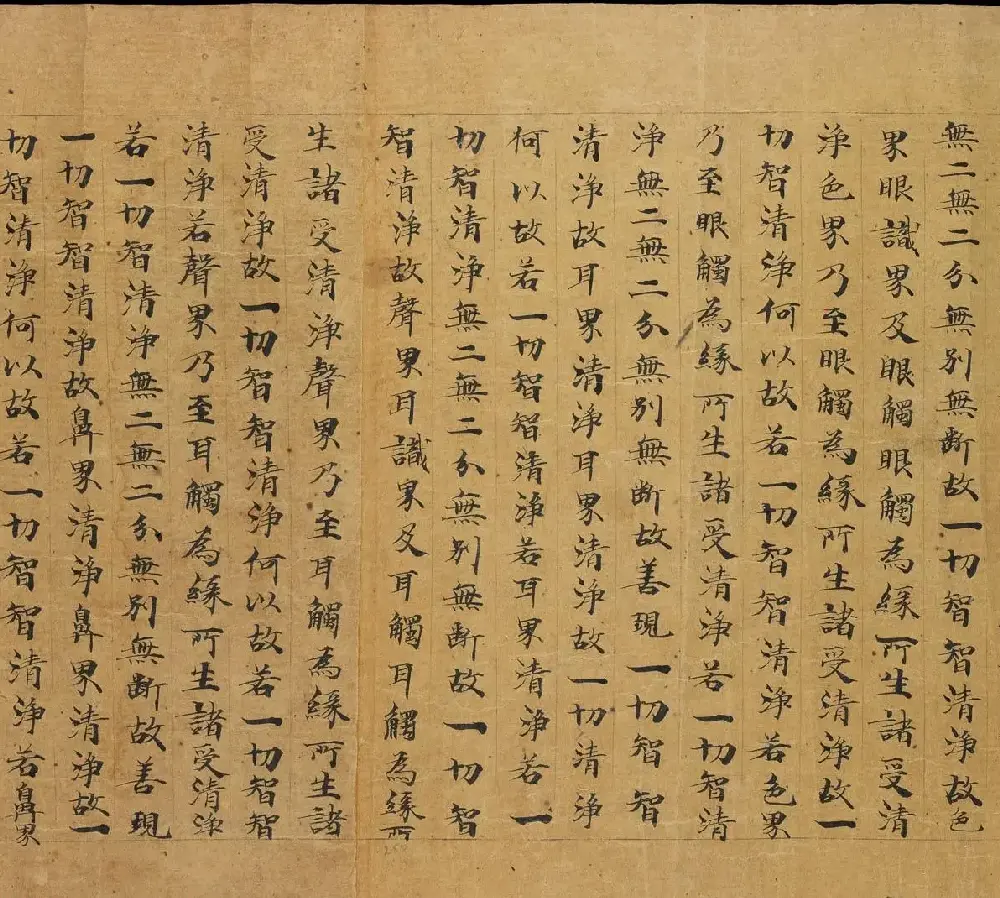 無二無二分無別無斷故一切智智清淨故色
界眼識界及眼觸眼觸為緣所生諸受清
淨色界乃至眼觸為緣所生諸受清淨故一
切智智清淨何以故若一切智智清淨若色界
乃至眼觸為緣所生諸受清淨若一切智清
淨無二無二分無別無斷故善現一切智智
清淨故耳界清淨耳界清淨故一切清淨
何以故若一切智智清淨若耳界清淨若一
切智清淨無二無二分無別無斷故一切智
智清淨故聲界耳識界及耳觸耳觸為緣所
生諸受清淨聲界乃至耳觸為緣所生諸
受清淨故一切智智清淨何以故若一切智智
清淨若聲界乃至耳觸為緣所生諸受清淨
若一切智清淨無二無二分無別無斷故善現
一切智智清淨故鼻界清淨鼻界清淨故一
切智清淨何以故若一切智智清淨若鼻界